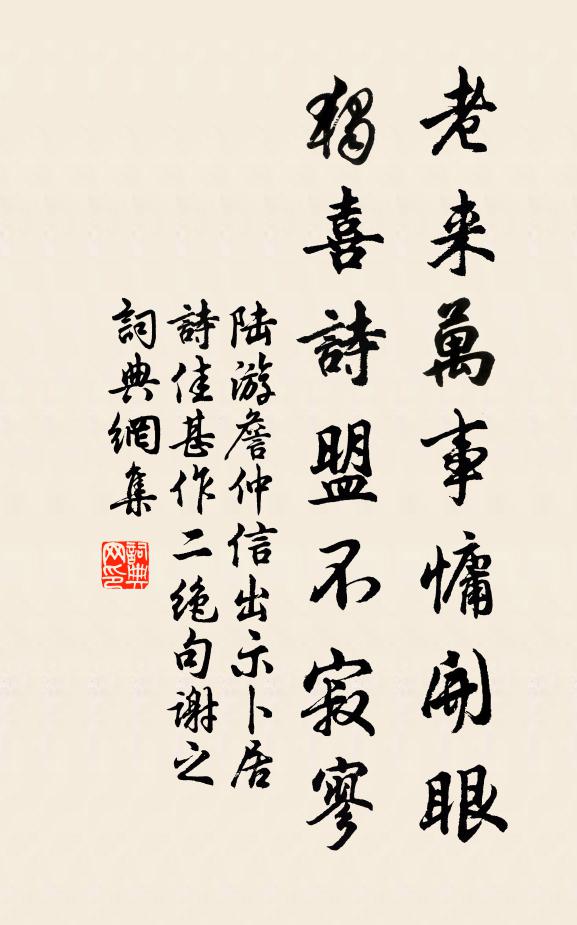 老来萬事慵開眼
獨喜詩盟不寂寥
陆游詹仲信出示卜居
詩佳甚作二绝句谢之
詞典網集
詞典
网印